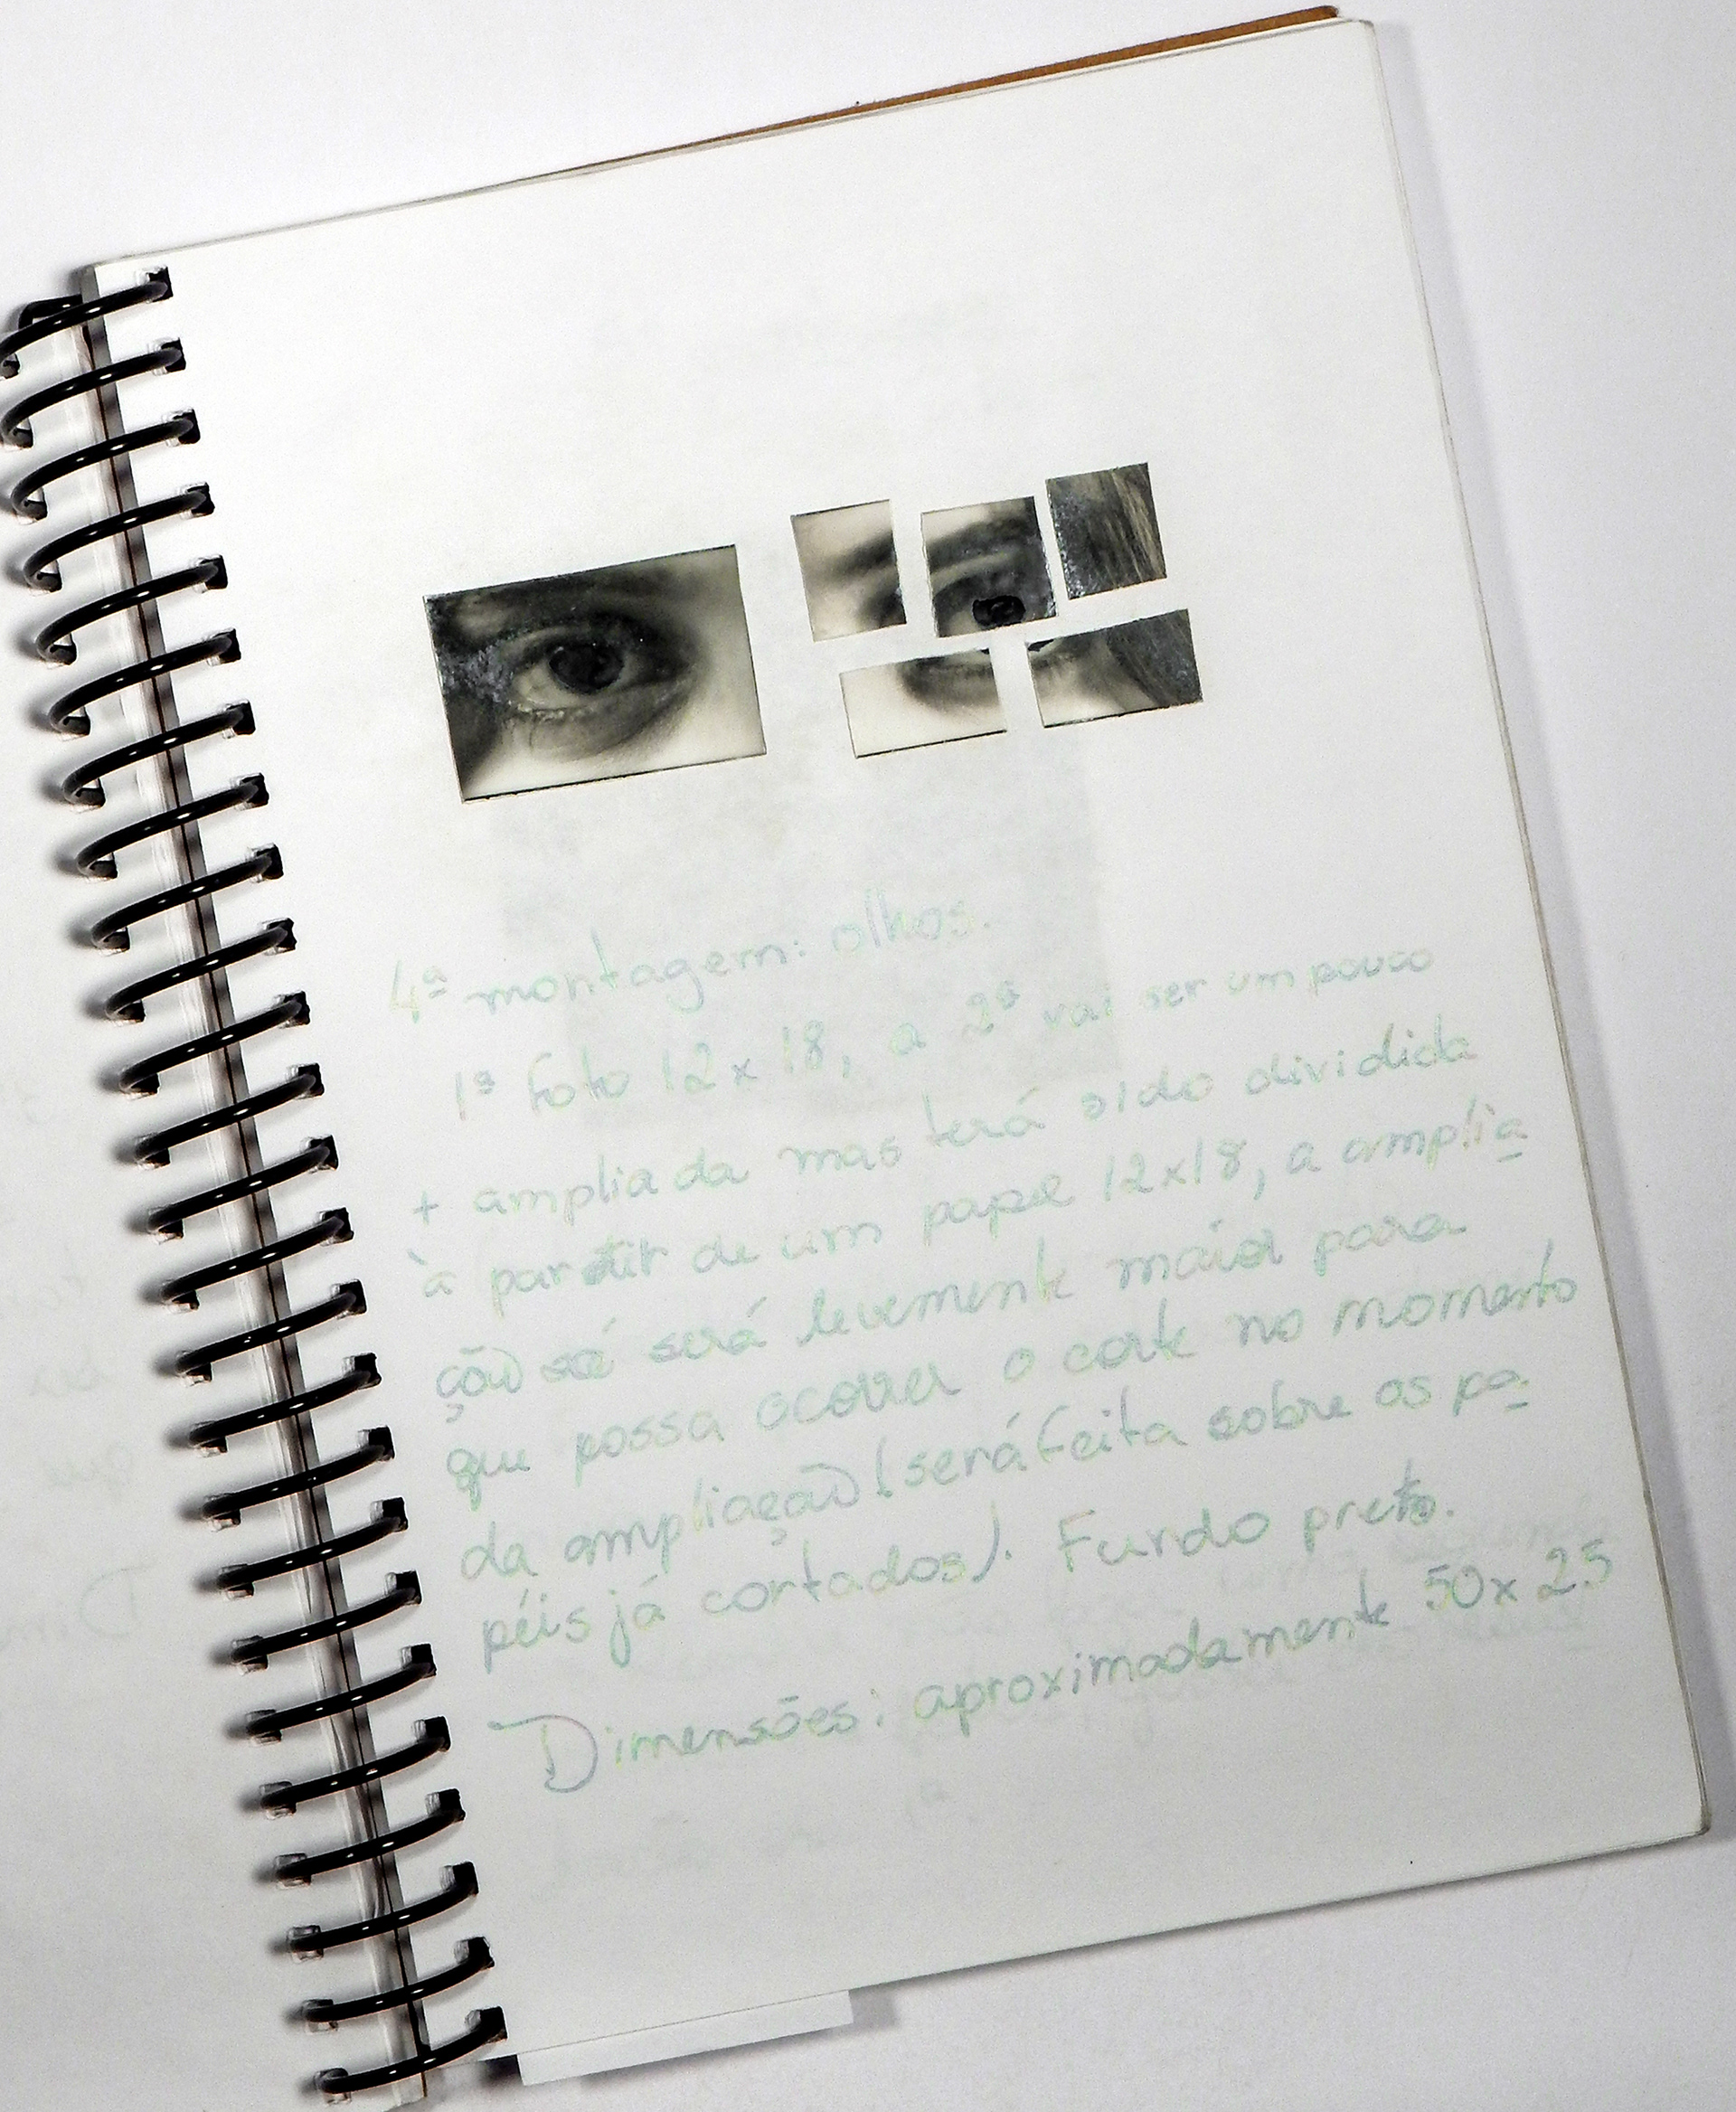 4ª montagem: olhos.
1ª foto 12x18, a 2ª vai ser um pouco
+ ampliada mas terá sido dividida
à partir de um papel 12x18, a amplia
ção será levemente maior para
que possa ocorrer o corte no momento
da ampliação (será feita sobre os pa
péis já cortados). Fundo preto.
Dimensões: aproximadamente 50x25